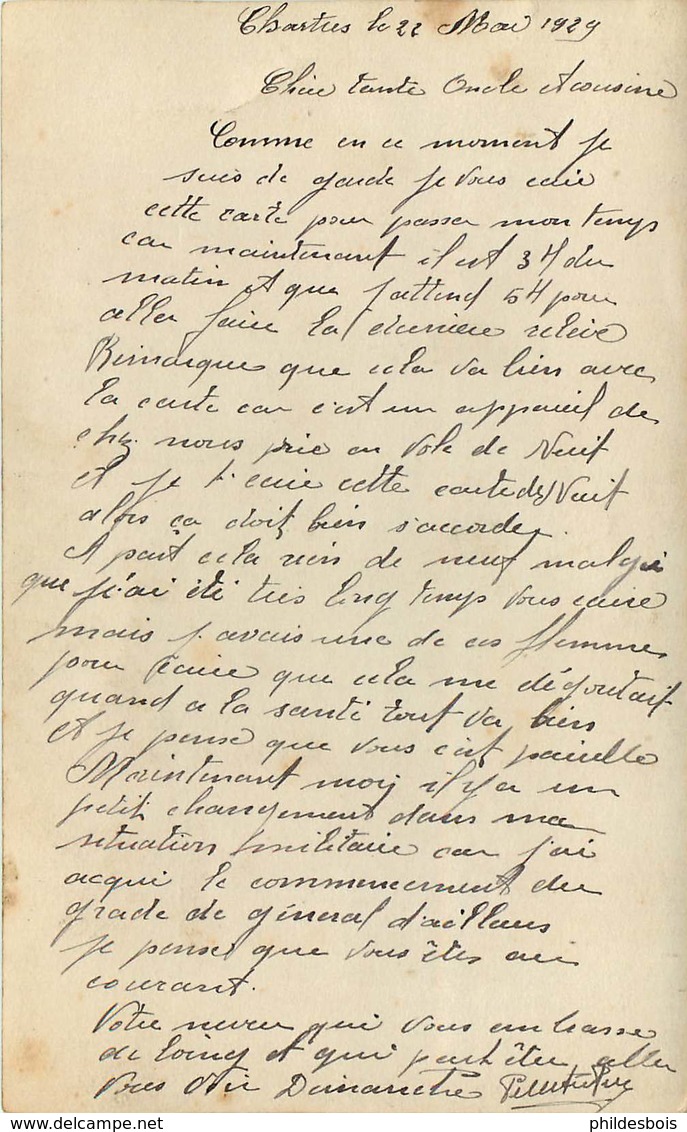 Chartres le 22 Mai 1929
Chère tante Oncle et cousine
Comme en ce moment je
suis de garde je vous ecrie
cette carte pour passer mon temps
car maintenant il est 3 H du
matin et que j'attend 5 H pour
aller faire la dernière relève
Remarque que cela va bien avec
la carte car c'est un appareil de
chez nous prie en vole de Nuit
et je t'ecrie cette carte de Nuit
alors ça doit bien s'accorder
A part cela rien de neuf malgré
que j'ai été très long temps vous ecrire
mais j'avais une de ces flemmes
pour écrire que cela me dégoutait
quand a la santé tout va bien
et je pense que vous c'est pareille
Maintenant moi il y a un
petit changement dans ma
situation militaire car j'ai
acqui le commencement du
grade de général d'ailleurs
je pense que vous êtes au
courant.
Votre neveu qui vous embrasse
de loing et qui peut être aller
vous voir Dimanche
phildesbois